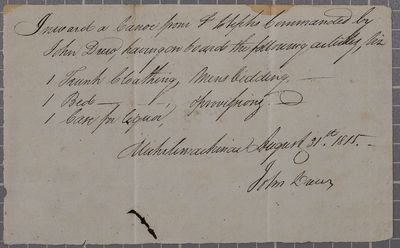 Inward a Canoe from St Josephs Commanded by
John Drew having on board the following articles, Viz
1 Trunk Cloathing, Mens bedding,
1 Bed — 1 — , provisions
1 Case for Liquor,
Michilimackinac August 31.st 1815.
John Drew